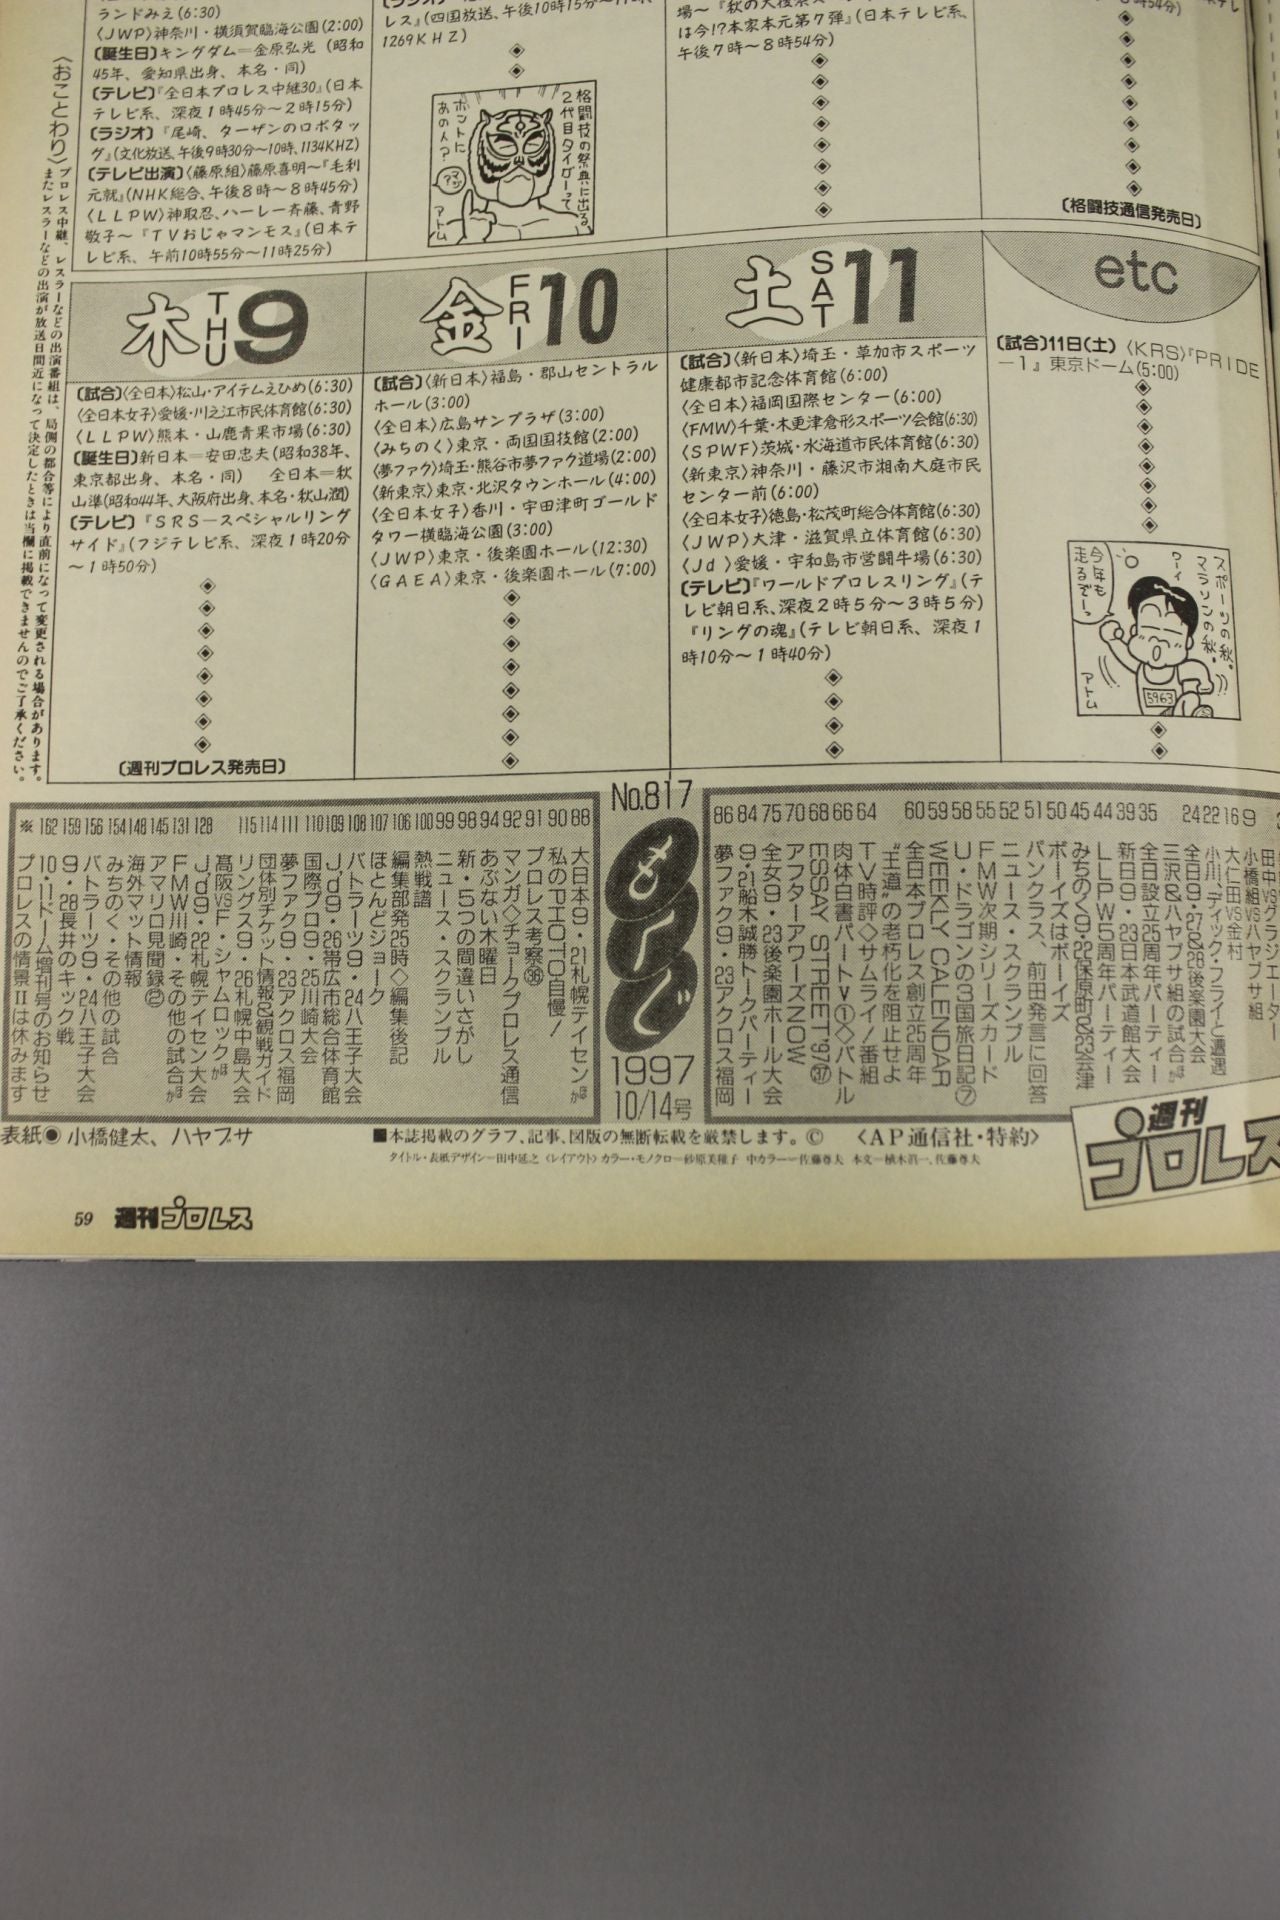 ランドみえ(6:30)
〈JWP〉神奈川・横須賀臨海公園(2:00)
〔誕生日〕キングダム＝金原弘光（昭和
45年、愛知県出身、本名・同）
〔テレビ〕『全日本プロレス中継30』(日本
テレビ系、深夜1時45分～2時15分)
〔ラジオ〕『尾崎、ターザンのロボタッ
グ』(文化放送、午後9時30分～10時、1134KHZ)
〔テレビ出演〕〈藤原組〉藤原喜明～『毛利
元就』(NHK総合、午後8時～8時45分)
〈LLPW〉神取忍、ハーレー斉藤、青野
敬子～『TVおじゃマンモス』(日本テ
レビ系、午前10時55分～11時25分)
レス』(四国放送、午後10時15分～11時
1269KHZ)
格闘技の祭典に出る、
2代目タイガーって
ホントに
あの人？
アトム
は今!?本家本元第7弾』(日本テレビ系、
午後7時～8時54分)
〔格闘技通信発売日〕
〈おことわり〉プロレス中継、レスラーなどの出演番組は、局側の都合等により直前になって変更される場合があります。
またレスラーなどの出演が放送日間近になって決定したときは当欄に掲載できませんのでご了承ください。
木 THU 9
〔試合〕〈全日本〉松山・アイテムえひめ(6:30)
〈全日本女子〉愛媛・川之江市民体育館(6:30)
〈LLPW〉熊本・山鹿青果市場(6:30)
〔誕生日〕新日本＝安田忠夫(昭和38年、
東京都出身、本名・同)　全日本＝秋
山準(昭和44年、大阪府出身、本名・秋山潤)
〔テレビ〕『SRS－スペシャルリング
サイド』(フジテレビ系、深夜1時20分
～1時50分)
〔週刊プロレス発売日〕
金 FRI 10
〔試合〕〈新日本〉福島・郡山セントラル
ホール(3:00)
〈全日本〉広島サンプラザ(3:00)
〈みちのく〉東京・両国国技館(2:00)
〈夢ファク〉埼玉・熊谷市夢ファク道場(2:00)
〈新東京〉東京・北沢タウンホール(4:00)
〈全日本女子〉香川・宇田津町ゴールド
タワー横臨海公園(3:00)
〈JWP〉東京・後楽園ホール(12:30)
〈GAEA〉東京・後楽園ホール(7:00)
土 SAT 11
〔試合〕〈新日本〉埼玉・草加市スポーツ
健康都市記念体育館(6:00)
〈全日本〉福岡国際センター(6:00)
〈FMW〉千葉・木更津倉形スポーツ会館(6:30)
〈SPWF〉茨城・水海道市民体育館(6:30)
〈新東京〉神奈川・藤沢市湘南大庭市民
センター前(6:00)
〈全日本女子〉徳島・松茂町総合体育館(6:30)
〈JWP〉大津・滋賀県立体育館(6:30)
〈Jd〉愛媛・宇和島市営闘牛場(6:30)
〔テレビ〕『ワールドプロレスリング』(テ
レビ朝日系、深夜2時5分～3時5分)
『リングの魂』(テレビ朝日系、深夜1
時10分～1時40分)
etc
〔試合〕11日(土)〈KRS〉『PRIDE
－1』東京ドーム(5:00)
スポーツの秋。
マラソンの秋。
ワーイ
今年も
走るぞーっ
5963
アトム
田中vsグラジエーター
小橋組vsハヤブサ組
9 大仁田vs金村
16 小川、ディック・フライと遭遇
22 全日9・27&28後楽園大会
24 三沢&ハヤブサ組の試合ほか
35 全日設立25周年パーティー
39 新日9・23日本武道館大会
44 LLPW5周年パーティー
45 みちのく9・22保原町&23会津
50 ボーイズはボーイズ
51 パンクラス、前田発言に回答
52 ニュース・スクランブル
55 FMW次期シリーズカード
58 U・ドラゴンの3国旅日記⑦
59 WEEKLY CALENDAR
60 全日本プロレス創立25周年
“王道”の老朽化を阻止せよ
64 TV時評◇サムライ！番組
66 肉体白書パートⅤ①◇バトル
68 ESSAY STREET'97㊲
70 アフターアワーズNOW
75 全女9・23後楽園ホール大会
84 9・21船木誠勝トークパーティー
86 夢ファク9・23アクロス福岡
No.817
もくじ
1997
10/14号
88 大日本9・21札幌テイセンほか
90 私のPHOTO自慢！
91 プロレス考察㊱
92 マンガ◇チョークプロレス通信
94 あぶない木曜日
98 新・5つの間違いさがし
99 ニュース・スクランブル
100 熱戦譜
106 編集部発25時◇編集後記
107 ほとんどジョーク
108 バトラーツ9・24八王子大会
109 J'd9・26帯広市総合体育館
110 国際プロ9・25川崎大会
111 夢ファク9・23アクロス福岡
114 団体別チケット情報&観戦ガイド
115 リングス9・26札幌中島大会
髙阪vsF・シャムロックほか
128 J'd9・22札幌テイセン大会
131 FMW川崎・その他の試合ほか
145 アマリロ見聞録㉑
148 海外マット情報
154 みちのく・その他の試合
156 バトラーツ9・24八王子大会
159 9・28長井のキック戦
162 10・11ドーム増刊号のお知らせ
※ プロレスの情景Ⅱは休みます
表紙◉小橋健太、ハヤブサ
■本誌掲載のグラフ、記事、図版の無断転載を厳禁します。©　〈AP通信社・特約〉
タイトル・表紙デザイン＝田中延之〈レイアウト〉カラー・モノクロ＝砂原美種子 中カラー＝佐藤尊夫 本文＝植木眞一、佐藤尊夫
週刊
プロレス
59 週刊プロレス